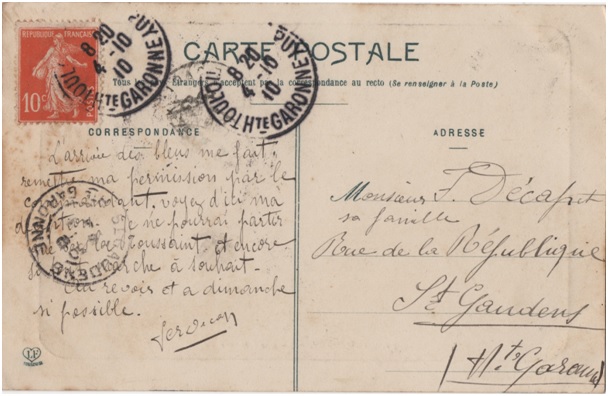 RÉPUBLIQUE FRANÇAISE
10c
POSTES
8-20
4-10
10
HTE GARONNE
CARTE POSTALE
8-20
4-10
10
HTE GARONNE
Tous les Étrangers n'acceptent pas la correspondance au recto (Se renseigner à la Poste)
CORRESPONDANCE
L'arrivée des bleus me fait
remettre ma permission par le
commandant, voyez d'ici ma
Je ne pourrai partir
Toussaint, et encore
marche à souhait.
Au revoir et a dimanche
si possible.
GARONNE
ADRESSE
Monsieur F. Décap
sa famille
Rue de la République
St Gaudens
(Hte Garonne)